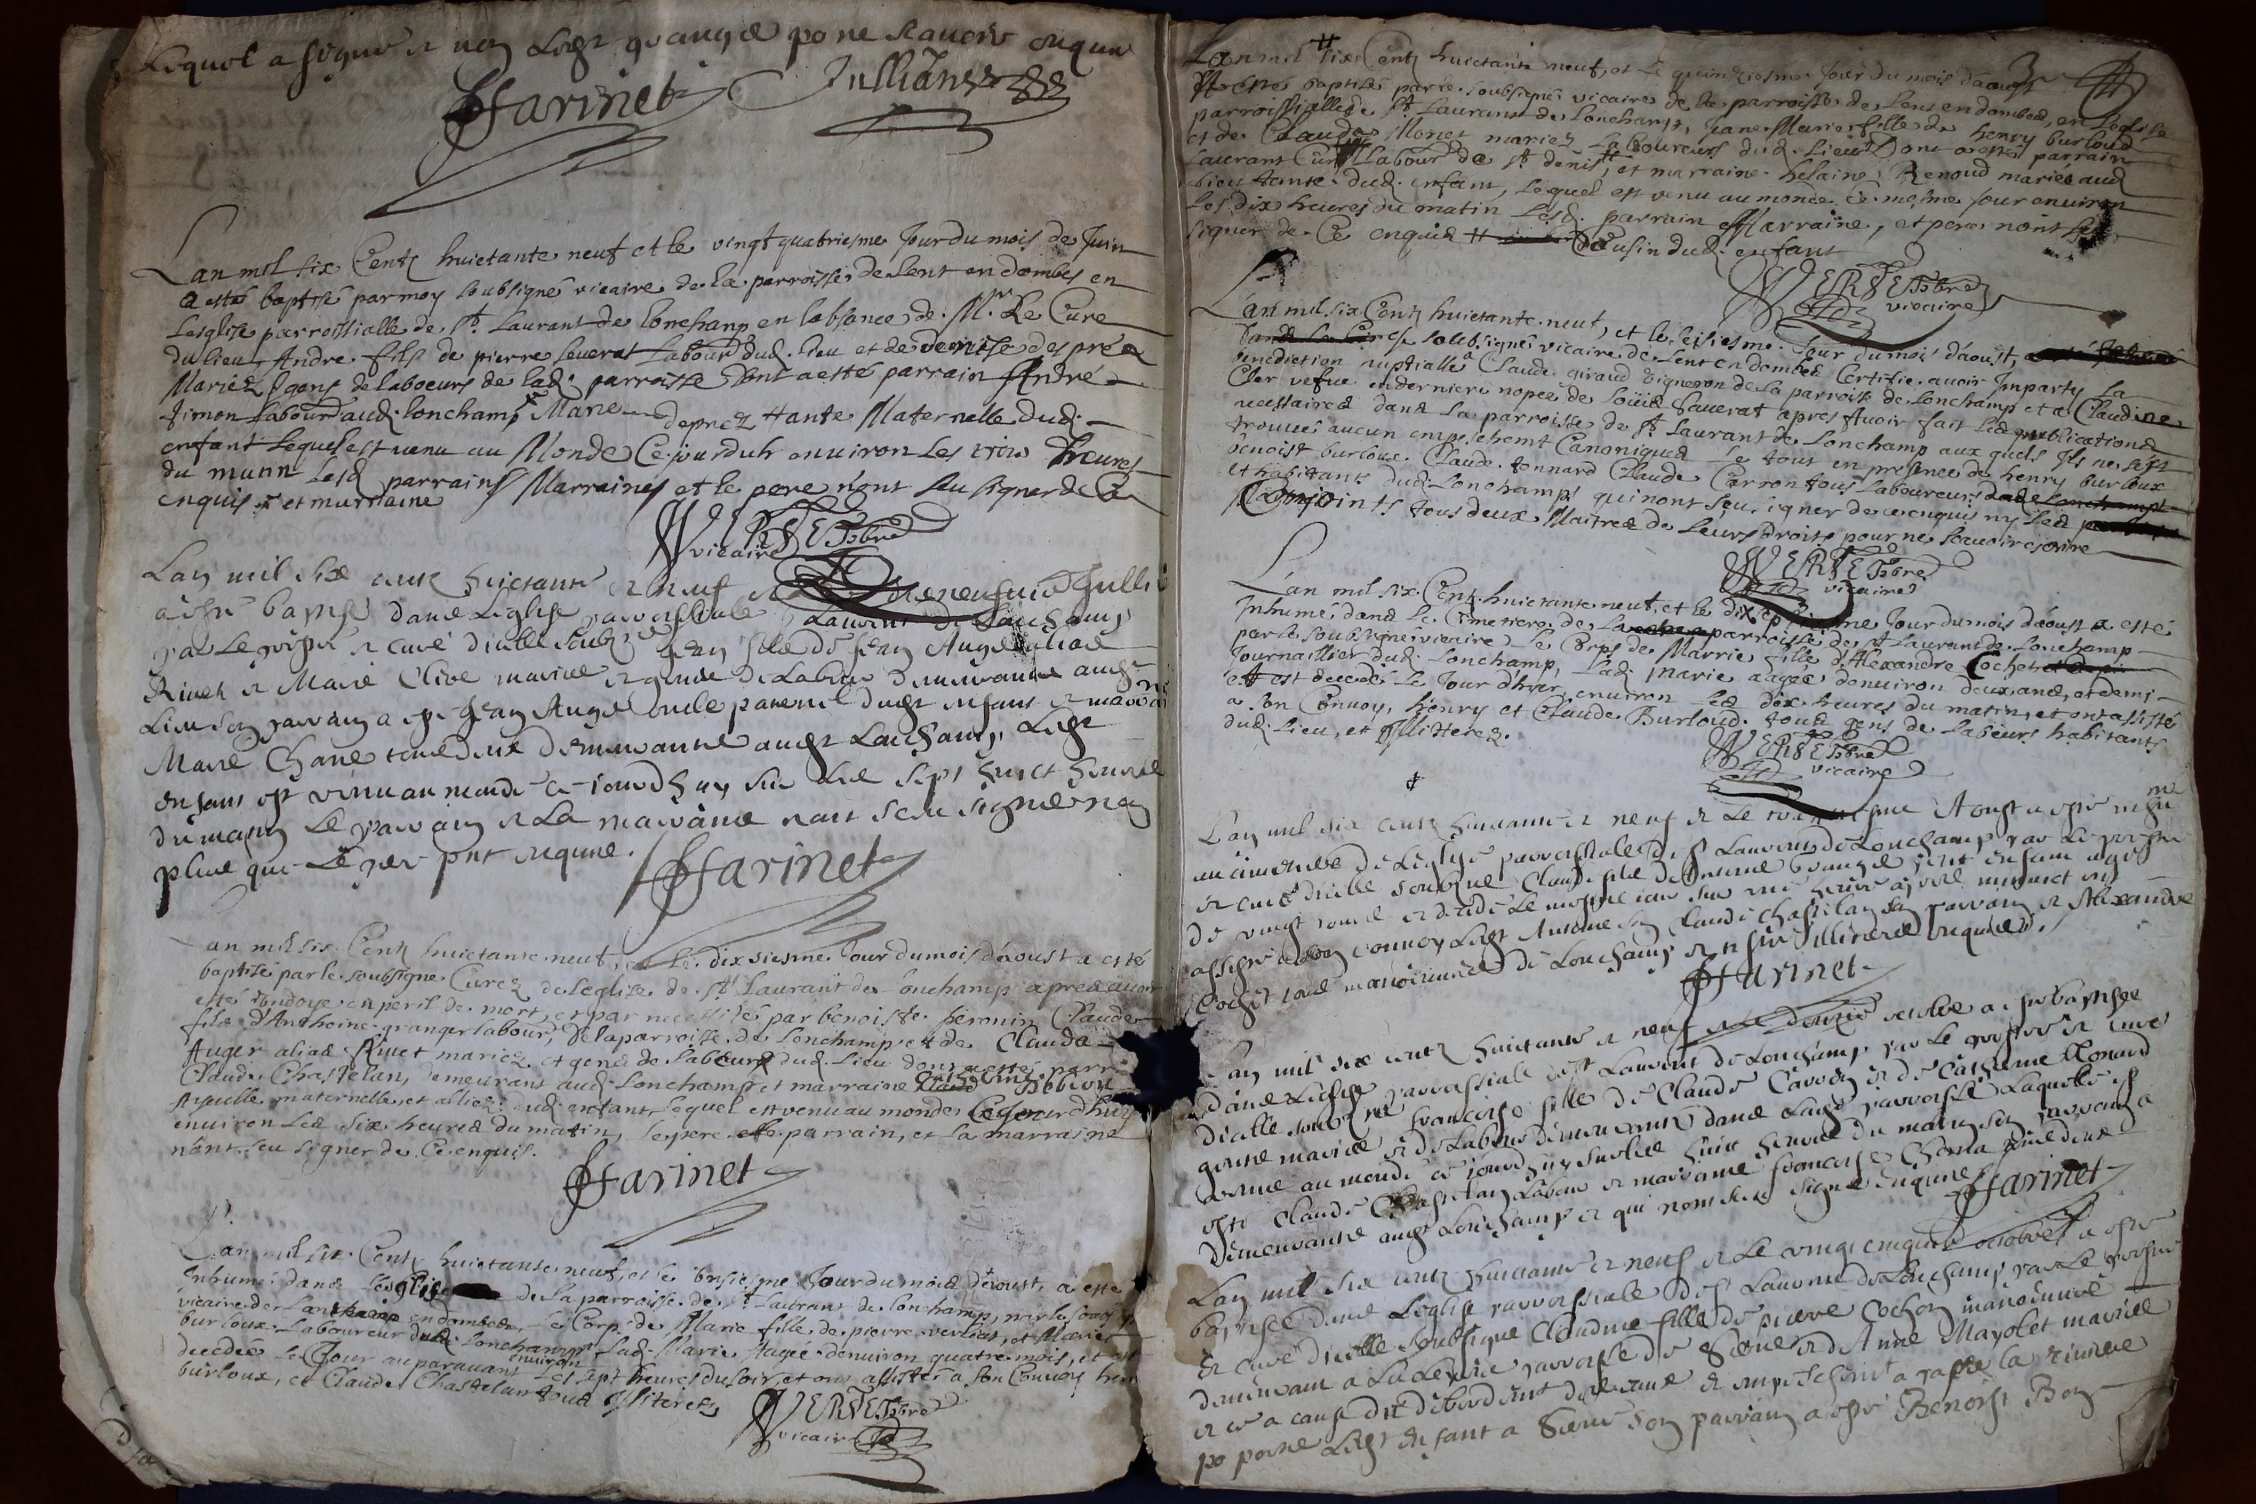 Lequel a signé et non Led grangé po ne scavoir enquis
ffarinet Jullians
Lan mil six Centz huictante neuf et le vingt quatriesme Jour du mois de Juin
a esté baptisé par moy soubsigné vicaire de la parroisse de Lent en dombes en
Lesglise parroissialle de st Laurant de Lonchamp en labsance de Mr Le Curé
du lieu, Andre fils de pierre seuerat Labour dud. lieu et de denise des préz
Mariez gens de laboeurs de lad. parroisse dont a esté parrain André
timon Labour aud. Lonchamp Marie deprez tante Maternelle dud.
enfant Lequel est uenu au Monde Ce jourduh enuiron les trois heures
du matin Lesd parrains Marraines et le pere n'ont sceu signer de Ce
enquis et marraine
VERSE Pbre
vicaire
Lan mil six centz huictante et neuf
a esté baptisé dans Leglise parroissiale Laurent de Lonchamp
par Le prestre et curé dicelle soubz né Jean fils de Jean Augé alias
Rivet et Marie Clive mariez et gens de Labeur demeurants audt
Lieu son parrain a esté Jean Augé oncle paternel dudt enfant et marraine
Marie Chane tous deux demeurants audt Lonchamp Ledt
enfant est venu au monde ce iourdhuy sur Les sept huict heures
du matin Le parrain et La marraine n'ont sceu signer non
plus que Le pere pnt enquis.
ffarinet
Lan mil six Centz huictante neuf, et le dixiesme Jour du mois d'aoust a esté
baptisé par le soubsigné Curéz de leglise de st Laurant de Lonchamp apres auoir
esté ondoyé en peril de mort, et par necessité par benoiste peronin Claude
fils d'Anthoine granger labour, de la parroisse de Lonchamp et de Clauda
Auger alias Rivet mariez et gens de Labeurs dud. Lieu dont a esté parr
Claude Chastelan, demeurant aud. Lonchamp et marraine
Ayeulle maternelle, et alliez dud. enfant, Lequel est venu au monde Ce jourdhuy
enuiron Les six heures du matin, Le pere, le parrain, et La marraine
n'ont sceu signer de Ce enquis.
ffarinet
Lan mil six Centz huictante neuf, et le onsiesme Jour du mois d'aoust, a esté
Inhumé dans Lesglise de la parroisse de st Laurans de Lonchamp, par le soub
vicaire de Lent en dombes, Le Corps de Marie fille de pierre
burloux Laboureur dud. Lonchamp Lad. Marie Aagée denuiron quatre mois, et est
decedée Le Jour auparauant enuiron Les sept heures du soir, et ont assistés a son Conuoy
burloux, et Claude Chastelan tous illiterez
VERSE Pbre
vicaire
3
Lan mil six Centz huictante neuf, et Le quinziesme Jour du mois d'aoust
A esté baptisé par le soubsigné vicaire de la parroisse de Lent en dombes, en Leglise
parroissialle de st Laurant de Lonchamp, Jeane Marie fille de henry burloud
et de Clauda Monet mariez Laboureurs dud. Lieu Dont a esté parrain
Laurant Curt Labour de st denis, et marraine helaine Renoud mariée aud
lieu tante dud. enfant, Lequel est venu au monde Ce mesme Jour enuiron
Les dix heures du matin Lesd. parrain Marraine, et pere n'ont sceu
signer de Ce enquis Cousin dud. enfant
VERSE Pbre
vicaire
Lan mil six Centz huictante neuf, et le seisiesme Jour du mois d'aoust,
soubsigné vicaire de Lent en dombes Certifie auoir Imparty La
benediction nuptialle a Claude giraud vigneron de La parroisse de Lonchamp et a Claudine
Cler vefue en derniere nopces de Loüis Sauerat apres Auoir fait Les publications
necessaires dans La parroisse de st Laurant de Lonchamp aux quels Ils ne sest
trouué aucun empeschemt Canoniques Le tout en presence de henry burloux
benoist burloux Claude tonnard Claude Carron tous Laboureurs
et habitants dud. Lonchamp qui n'ont sceu signer de ce enquis ny Les
Conjoints tous deux Maitres de Leurs droits pour ne scauoir escrire
VERSE Pbre
vicaire
Lan mil six Centz huictante neuf, et le dix septiesme Jour du mois d'aoust a esté
Inhumé dans Le Cimetiere de La parroisse de st Laurant de Lonchamp
par le soubsigné vicaire Le Corps de Marrie fille d'Alexandre Cochet
Journaillier dud. Lonchamp, Lad. Marie aagée denuiron deux ans, et demi
et est decedé Le Jour dhyer enuiron Les dix heures du matin, et ont assisté
a son Conuoy, henry et Claude Burloud tous gens de Labeurs habitants
dud. Lieu, et Illiterez.
VERSE Pbre
vicaire
Lan mil six centz huictante et neuf et Le Aoust a esté inhumé
au cimetiere de Leglise parroissiale de st Laurent de Lonchamp par Le prestre
et curé dicelle soubzné Claude fils de Anthoine Grangé petit enfant agé
de vingt iours et decedé Le mesme iour sur une heure apres minuict ont
assisté a son conuoy Ledt Antoine son Claude Chastelan son parrain et Alexandre
Cochet tous manoeuures de Lonchamp et n sceu illiterés enquis.
ffarinet
Lan mil six centz huictante et neuf et Le douze octobre a esté baptisée
dans Leglise parroissiale de st Laurent de Lonchamp par Le prestre et curé
dicelle soubz né francoise fille de Claude Carron et de Catherine Monard
gens mariés et de Labeur demeurants dans Ladte parroisse Laquelle est
venue au monde ce iourdhuy sur Les huict heures du matin son parrain a
esté Claude Chastelan Labour et marraine francoise Choma tous deux
demeurants audt Lonchamp et qui n'ont sceu signer enquis
ffarinet
Lan mil six centz huictante et neuf et Le vingt cinquie octobre a esté
baptisée dans Leglise parroissiale de st Laurent de Lonchamp par Le prestre
et curé dicelle soubsigné Claudine fille de pierre Cochon manoeuuré
demeurant a La parroisse de et de Anne Mayolet mariés
et ce a cause du debordement des eaux et empeschent a passer la riuiere
po porter Ledt enfant a son parrain a esté Benoist Bon